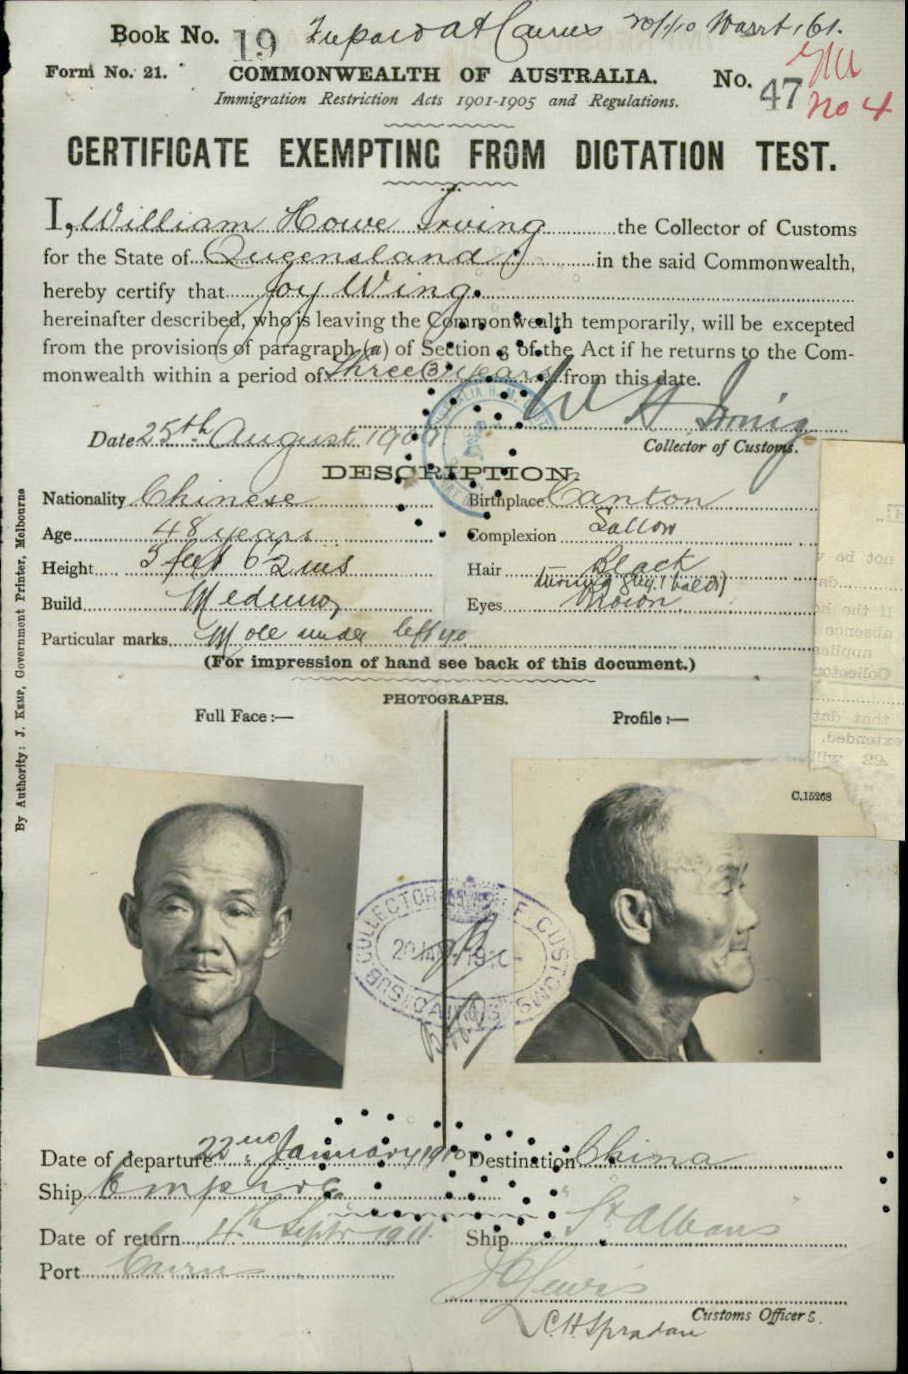 Book No. 19 at Cairns 20/1/10 Warrt 161.
Form No. 21. COMMONWEALTH OF AUSTRALIA. No. 47
Immigration Restriction Acts 1901-1905 and Regulations. No 4
CERTIFICATE EXEMPTING FROM DICTATION TEST.
I, William Howe Irving the Collector of Customs
for the State of Queensland in the said Commonwealth,
hereby certify that Joy Wing.
hereinafter described, who is leaving the Commonwealth temporarily, will be excepted
from the provisions of paragraph (a) of Section 3 of the Act if he returns to the Com-
monwealth within a period of Three (3) years from this date.
W H Irving
Date 25th August Collector of Customs.
DESCRIPTION.
Nationality Chinese Birthplace Canton
Age 48 years Complexion Sallow
Height 5 feet 6½ ins Hair Black
turning grey (bald)
Build Medium Eyes Brown
Particular marks Mole under left eye
(For impression of hand see back of this document.)
PHOTOGRAPHS.
Full Face :— Profile :—
By Authority: J. KEMP, Government Printer, Melbourne
C.15268
SUB COLLECTOR OF CUSTOMS
CAIRNS
Date of departure 22nd January 1910 Destination China
Ship Empire
Date of return 4th Septr 1911 Ship "St Albans"
Port Cairns
Customs Officers.